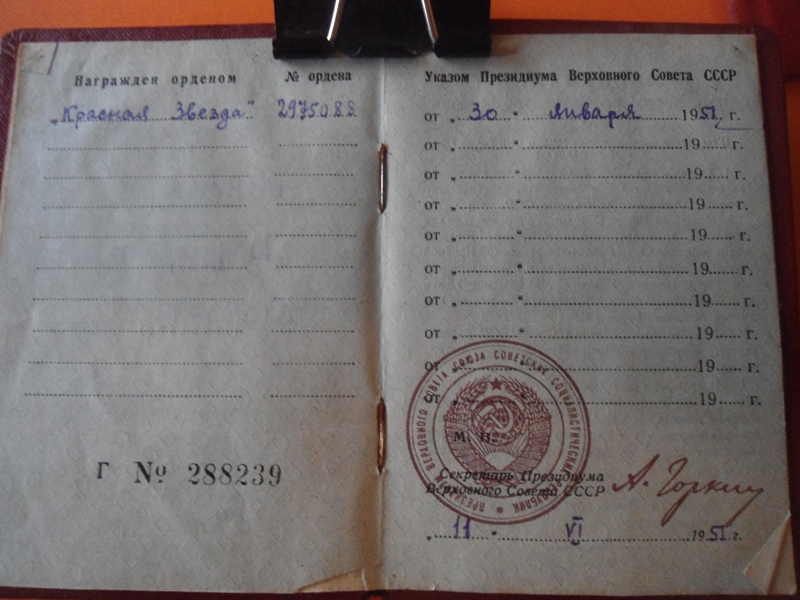 Награжден орденом
№ ордена
„Красная Звезда" 2975088
Г № 288239
Указом Президиума Верховного Совета СССР
от „ 30 “ января 1951 г.
от „ “ 19 г.
от „ “ 19 г.
от „ “ 19 г.
от „ “ 19 г.
от „ “ 19 г.
от „ “ 19 г.
от „ “ 19 г.
от „ “ 19 г.
от „ “ 19 г.
М. П.
Секретарь Президиума
Верховного Совета СССР
А. Горкин
„ 11 “ VI 1951 г.
ПРЕЗИДИУМ ВЕРХОВНОГО СОВЕТА СОЮЗА СОВЕТСКИХ СОЦИАЛИСТИЧЕСКИХ РЕСПУБЛИК